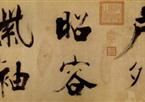 户外
昭容
紫袖